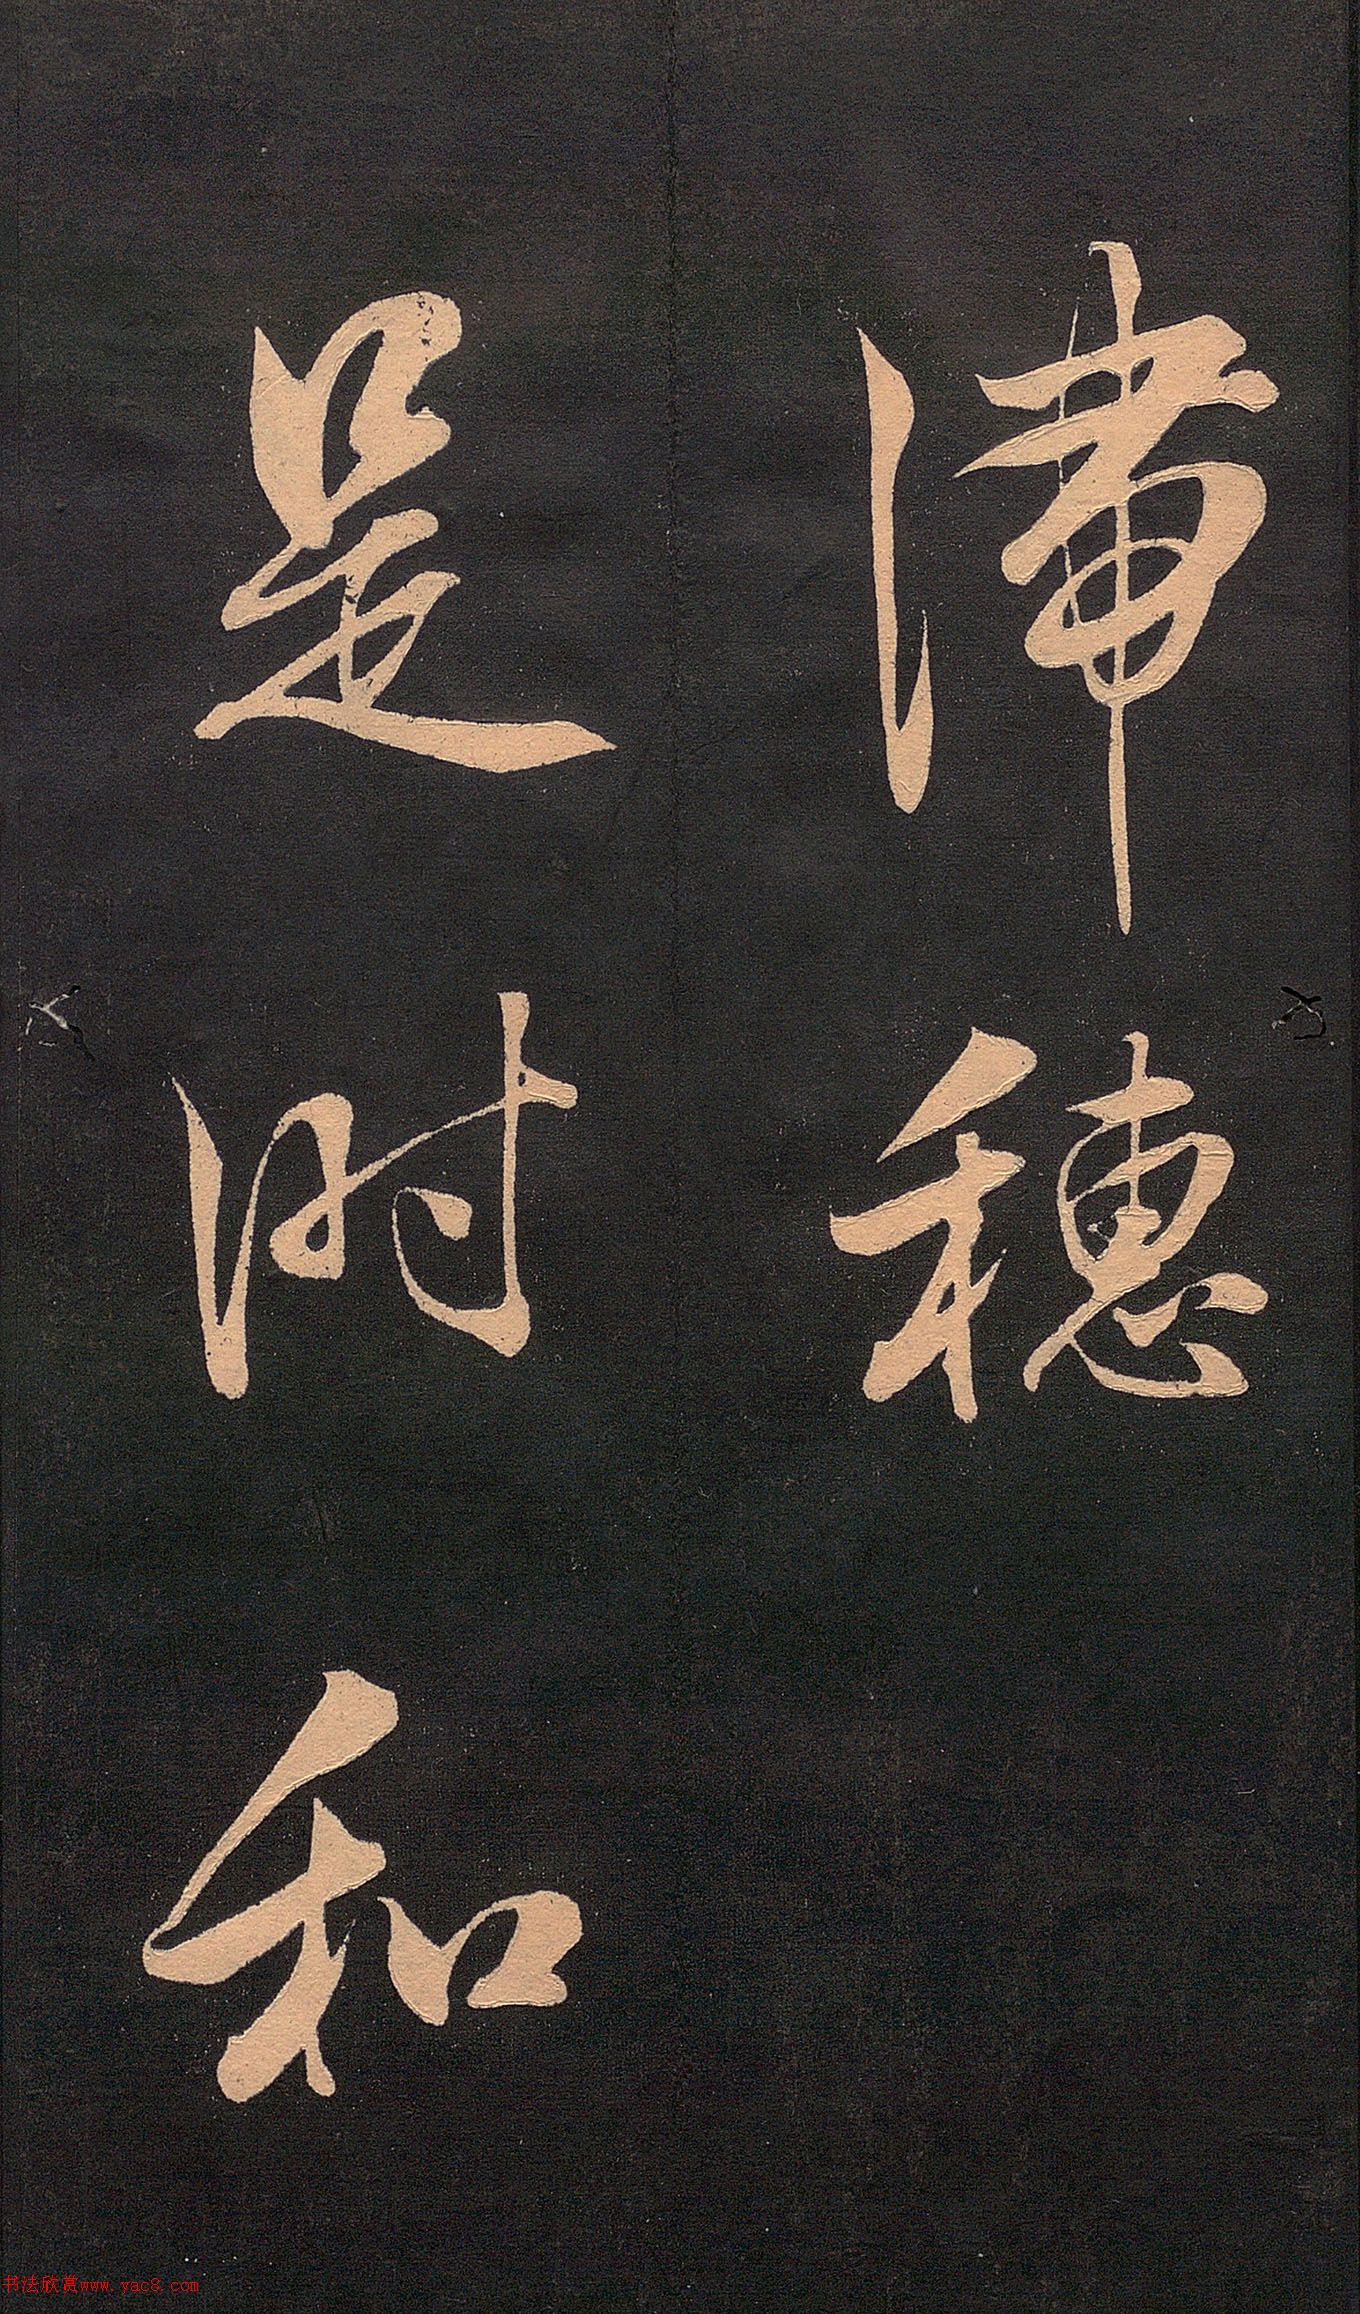 滞穗
是时和
书法欣赏www.yac8.com